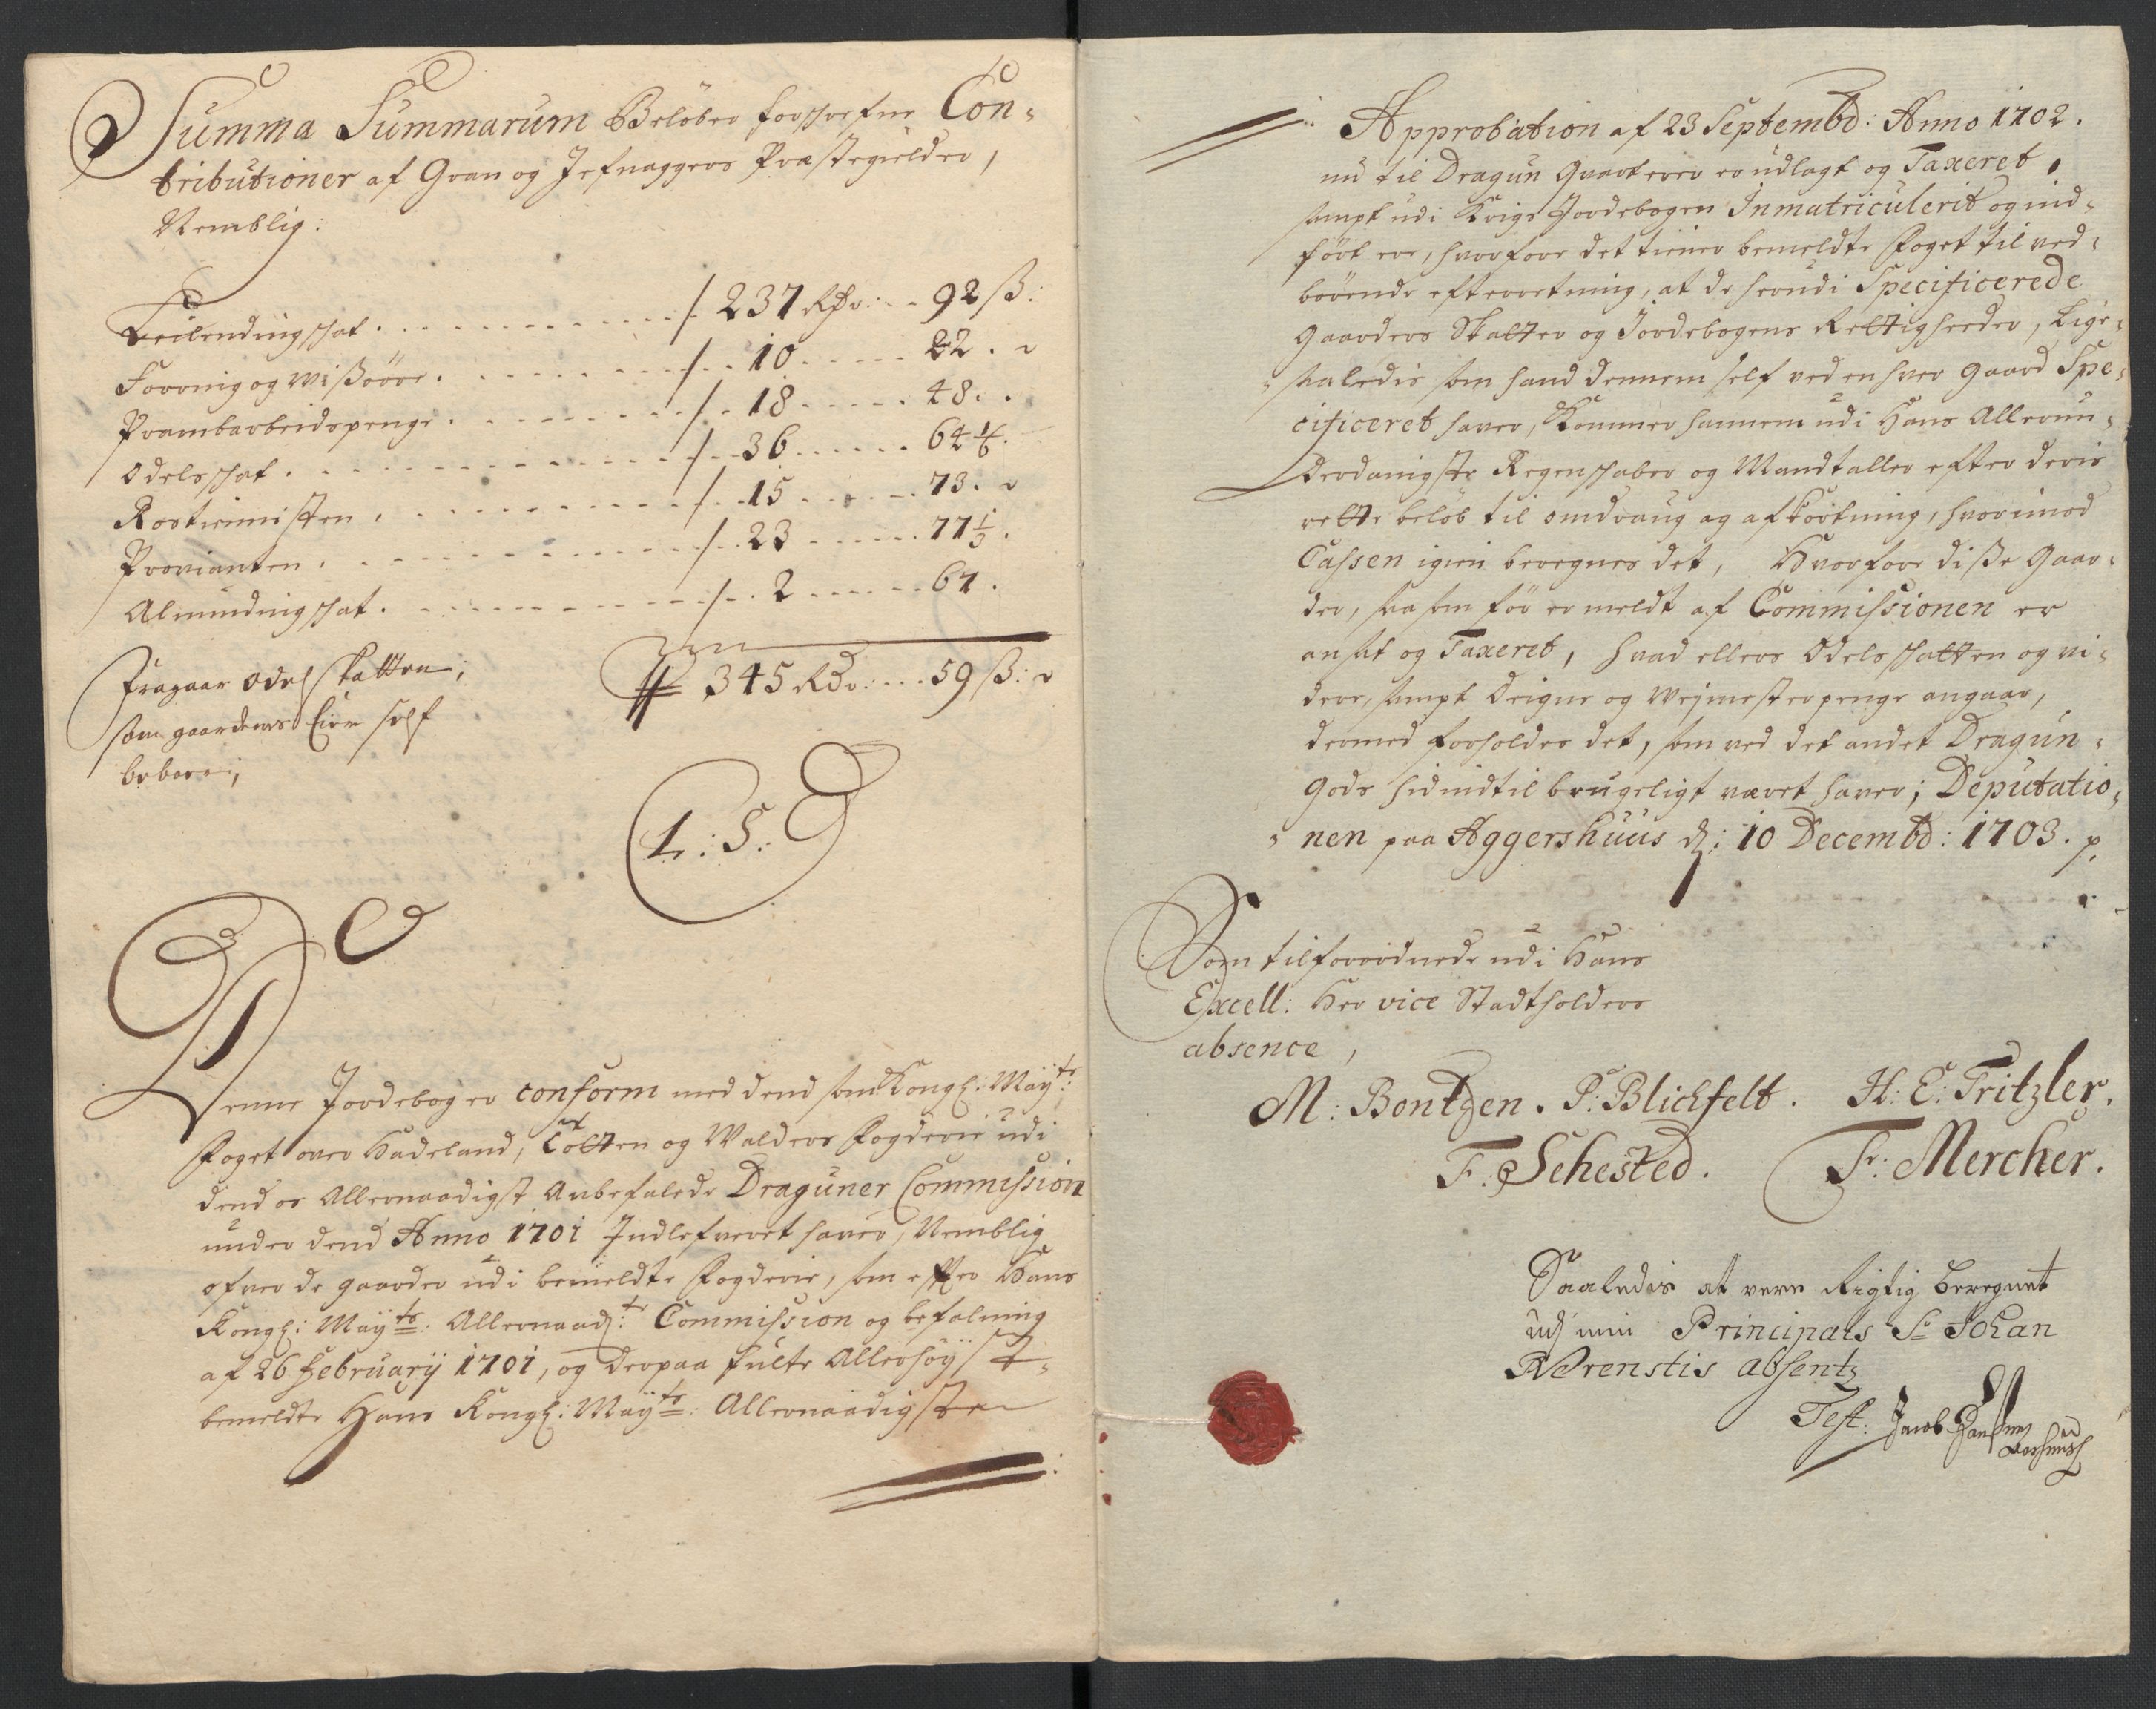 Summa Summarum Beløber forschrefne Con-
tributioner af Gran og Jefnaggers Præstegielder,
Nemblig:
Leilendingschat . 237 Rdr: 92 ß:
Foering og Wisøre . 10 . 22 .
Prambarbeidspenge . 18 . 48 .
Odelsschat . 36 . 64 1/6 .
Rostieniste . 15 . 73 .
Provianten . 23 . 77 1/3 .
Almindingschat . 2 . 67 .
345 Rdr: 59 ß:
Fragaar Odelskatten,
som gaardenes Eier self
beboer,
L: S:
Denne Jordebog er conform med dend som Kongl: Mayts:
Foget over Hadeland, Totten og Walders Fogderie udi
dend os Allernaadigst Anbefalede Draguner Commission
under dend Anno 1701 Indlefveret haver, Nemblig
ofver de gaarder udi bemeldte Fogderie, som efter Hans
Kongl: Mayts: Allernaadte: Commission og befalning
af 26 Februarij 1701, og derpaa fulte Allerhøyst-
bemeldte Hans Kongl: Mayts: Allernaadigste
Approbation af 23 Septembr: Anno 1702.
nu til Dragun Qvarterer er udlagt og Taxeret,
sampt udi Krigs Jordebogen Inmatriculerit og ind-
ført ere, hvorfore det tiener bemeldte Foget til ved-
børende efterretning, at de herudi Specificerede
Gaarders Skatter og Jordebogens Rettigheeder, Lige-
saaledis som hand dennem self ved en hver gaard Spe-
cificeret haver, Kommer hannem udi Hans Allerun-
derdanigste Regenschaber og Mandtaller efter deris
rette beløb til omdraug og afkortning, hvorimod
Cassen igien beregnes det, Hvorfore disse Gaar-
der, saa som før er meldt af Commissionen er
ansat og Taxeret, hvad ellers Odelsschatten og vi-
dere, sampt Deigne og Wejmesterpenge angaar,
dermed forholdes det, som ved det andet Dragun-
Gods hidindtil brugeligt været haver; Deputatio-
nen paa Aggershuus d: 10 Decembr: 1703. p.
Som tilforordnede udi Hans
Excell: Her vice Stadtholders
absence,
M: Bontzen. P: Blichfelt. H: E: Tritzler.
F: Sehested. Fr: Mercher.
Saaledis at være Rigtig beregnet
udj min Principals Sr Johan
Arenstis absentz
Test: Jacob Hansen